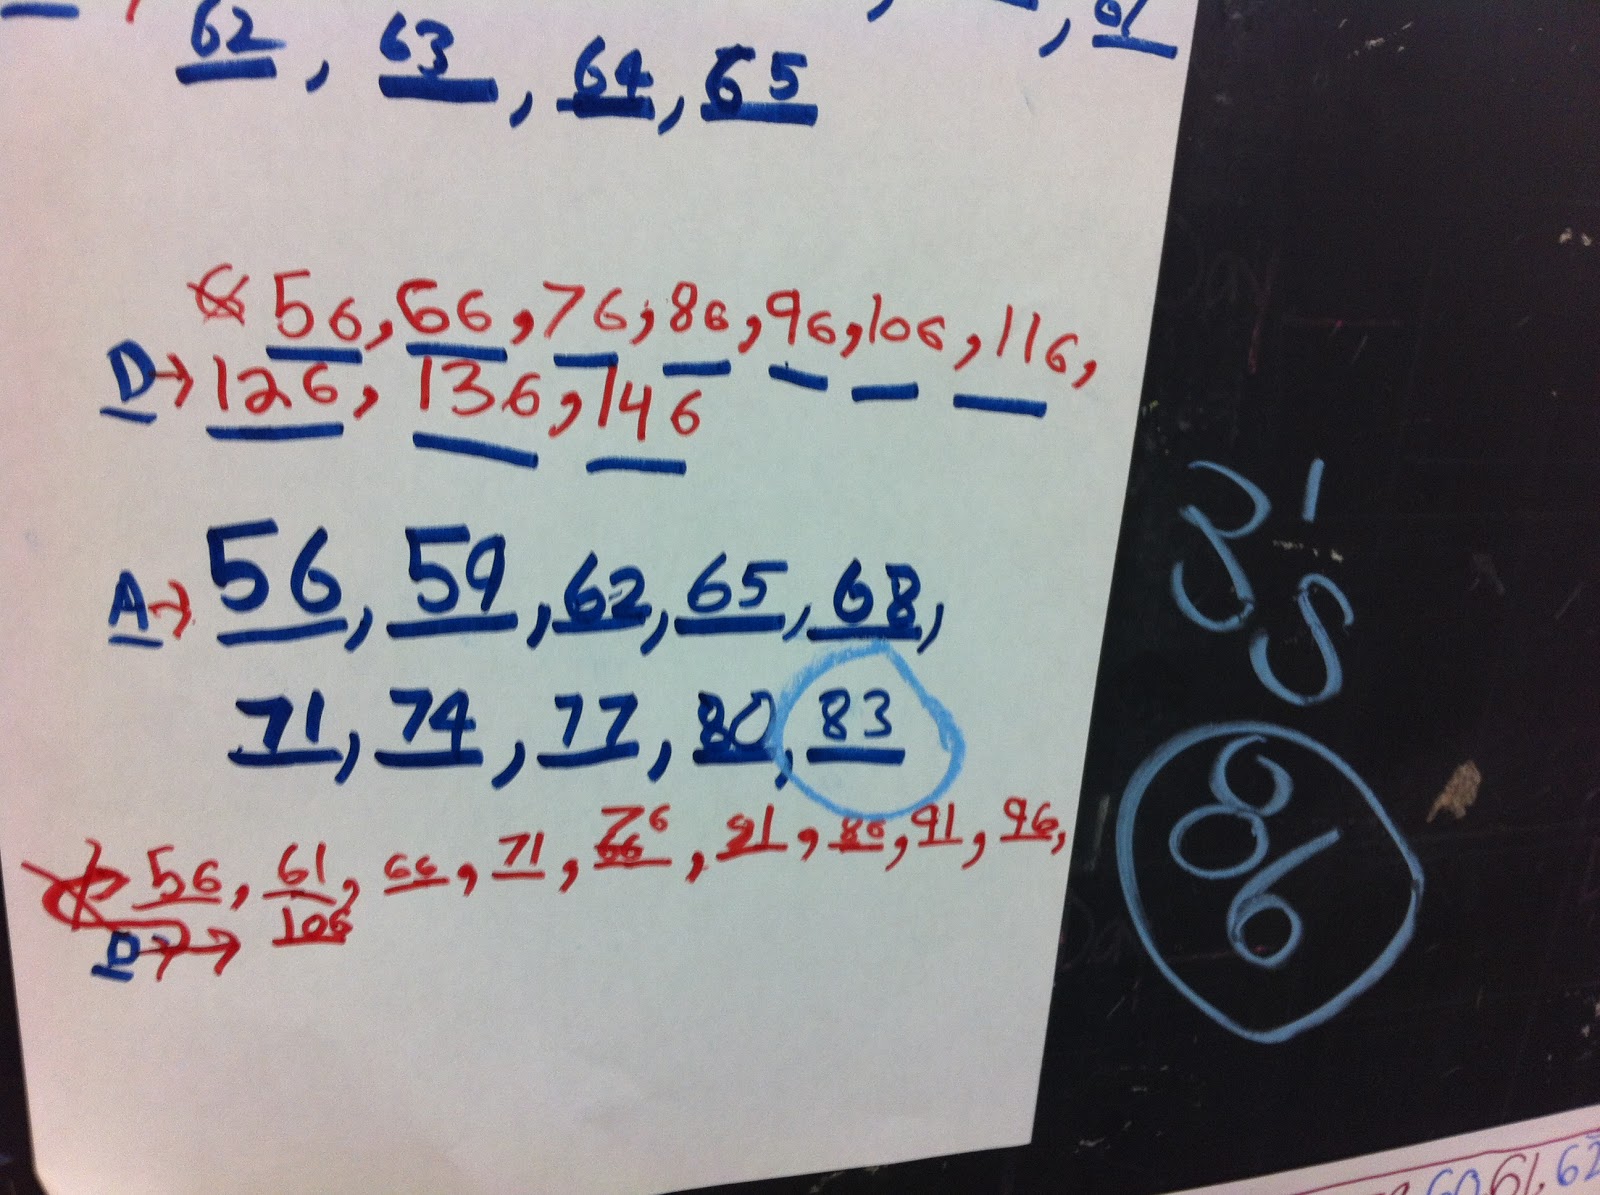 62, 63, 64, 65
56, 66, 76, 86, 96, 106, 116,
D→ 126, 136, 146
A→ 56, 59, 62, 65, 68,
71, 74, 77, 80, 83
56, 61, 66, 71, 76, 81, 86, 91, 96,
D→→ 106
3's
86
60, 61, 62